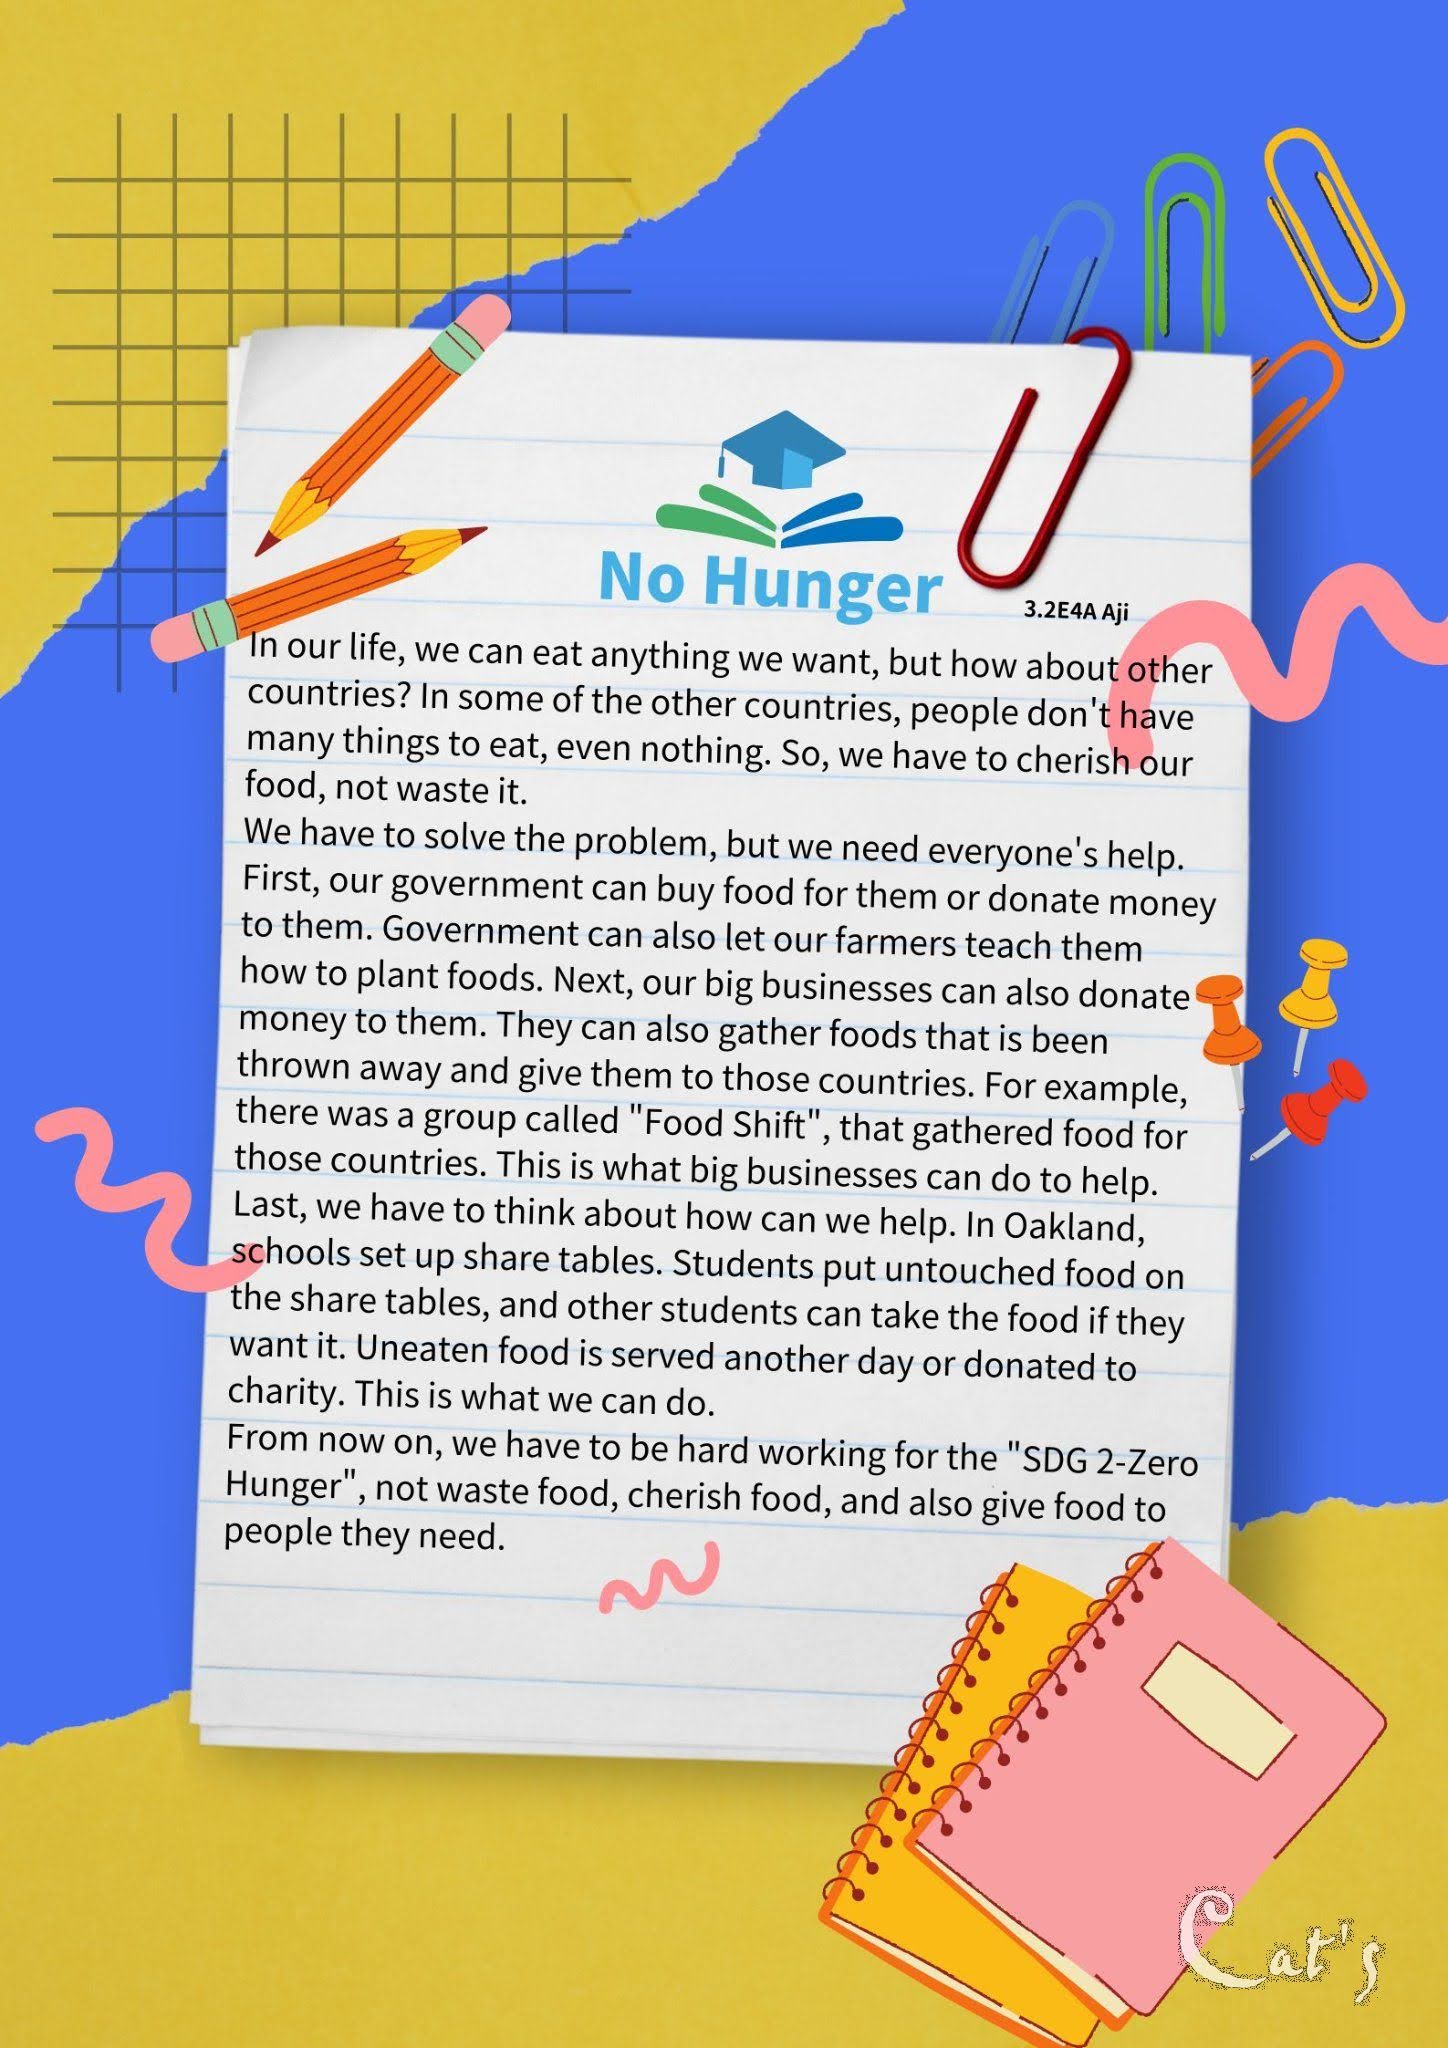 No Hunger
3.2E4A Aji
In our life, we can eat anything we want, but how about other
countries? In some of the other countries, people don't have
many things to eat, even nothing. So, we have to cherish our
food, not waste it.
We have to solve the problem, but we need everyone's help.
First, our government can buy food for them or donate money
to them. Government can also let our farmers teach them
how to plant foods. Next, our big businesses can also donate
money to them. They can also gather foods that is been
thrown away and give them to those countries. For example,
there was a group called "Food Shift", that gathered food for
those countries. This is what big businesses can do to help.
Last, we have to think about how can we help. In Oakland,
schools set up share tables. Students put untouched food on
the share tables, and other students can take the food if they
want it. Uneaten food is served another day or donated to
charity. This is what we can do.
From now on, we have to be hard working for the "SDG 2-Zero
Hunger", not waste food, cherish food, and also give food to
people they need.
Cat's